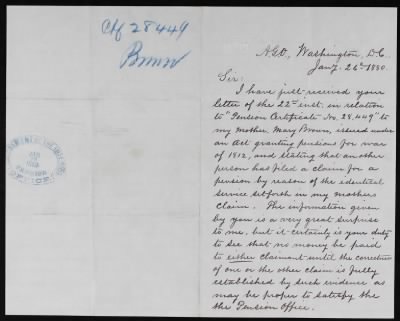 Ctf 28449
Brown
A.G.O., Washington, D.C.
Jany. 26th 1880.
Sir:
I have just received your
letter of the 22d inst. in relation
to "Pension Certificate No. 28,449" to
my mother, Mary Brown, issued under
an Act granting pensions for war
of 1812, and stating that another
person has filed a claim for a
pension by reason of the identical
service setforth in my mothers
claim. The information given
by you is a very great surprise
to me, but it certainly is your duty
to see that no money be paid
to either claimant until the correctness
of one or the other claim is fully
established by such evidence as
may be proper to satisfy the
the Pension Office.
PENSION
OFFICE